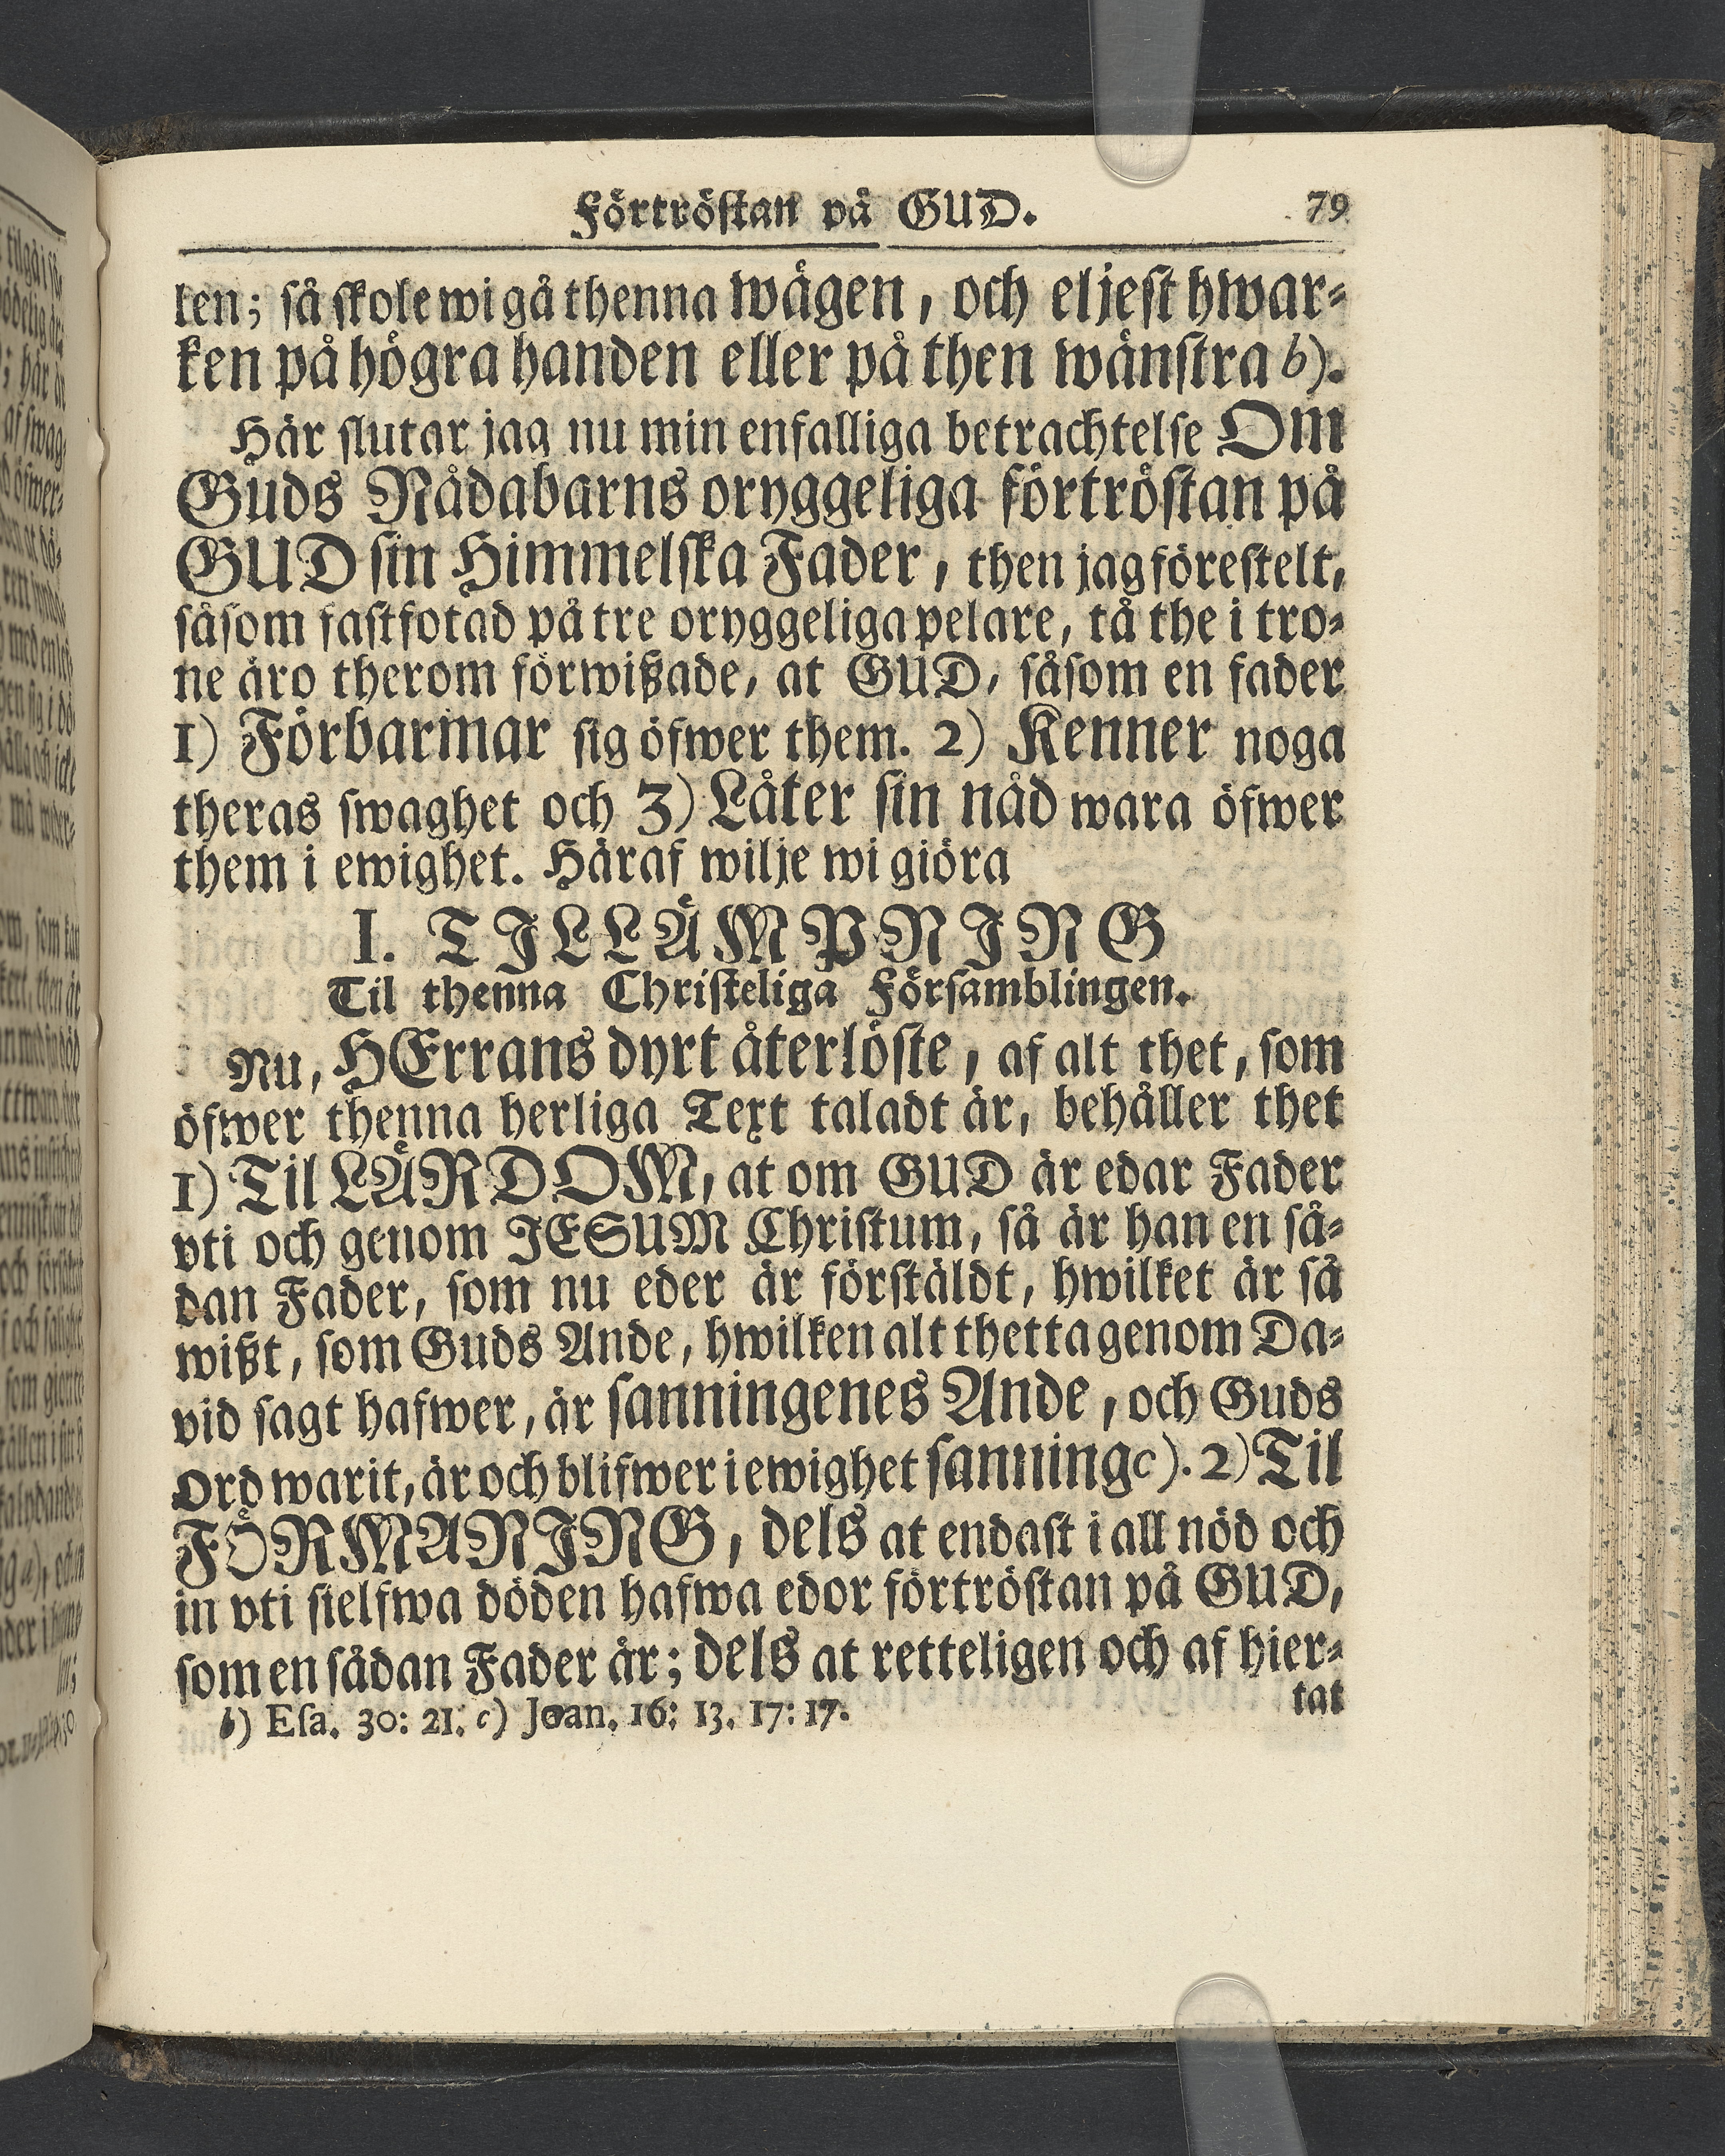 Förtröstan på GUD. 79
len; så skole wi gå thenna wägen, och eljest hwar-
ken på högra handen eller på then wänstra b).
Här slutar jag nu min enfalliga betrachtelse Om
Guds Nådabarns oryggeliga förtröstan på
GUD sin Himmelska Fader, then jag förestelt,
såsom fastfotad på tre oryggeliga pelare, tå the i tro-
ne äro therom förwißade, at GUD, såsom en fader
1) Förbarmar sig öfwer them. 2) Kenner noga
theras swaghet och 3) Låter sin nåd wara öfwer
them i ewighet. Häraf wilje wi giöra
I. TILLÄMPNING
Til thenna Christeliga Församblingen.
Nu, HErrans dyrt återlöste, af alt thet, som
öfwer thenna herliga Text taladt är, behåller thet
1) Til LÄRDOM, at om GUD är edar Fader
vti och genom JESUM Christum, så är han en så-
dan Fader, som nu eder är förstäldt, hwilket är så
wißt, som Guds Ande, hwilken alt thetta genom Da-
vid sagt hafwer, är sanningenes Ande, och Guds
Ord warit, är och blifwer i ewighet sanning c). 2) Til
FÖRMANING, dels at endast i all nöd och
in vti sielfwa döden hafwa edor förtröstan på GUD,
som en sådan Fader är; dels at retteligen och af hier-
tat
b) Esa. 30: 21. c) Joan. 16: 13. 17: 17.